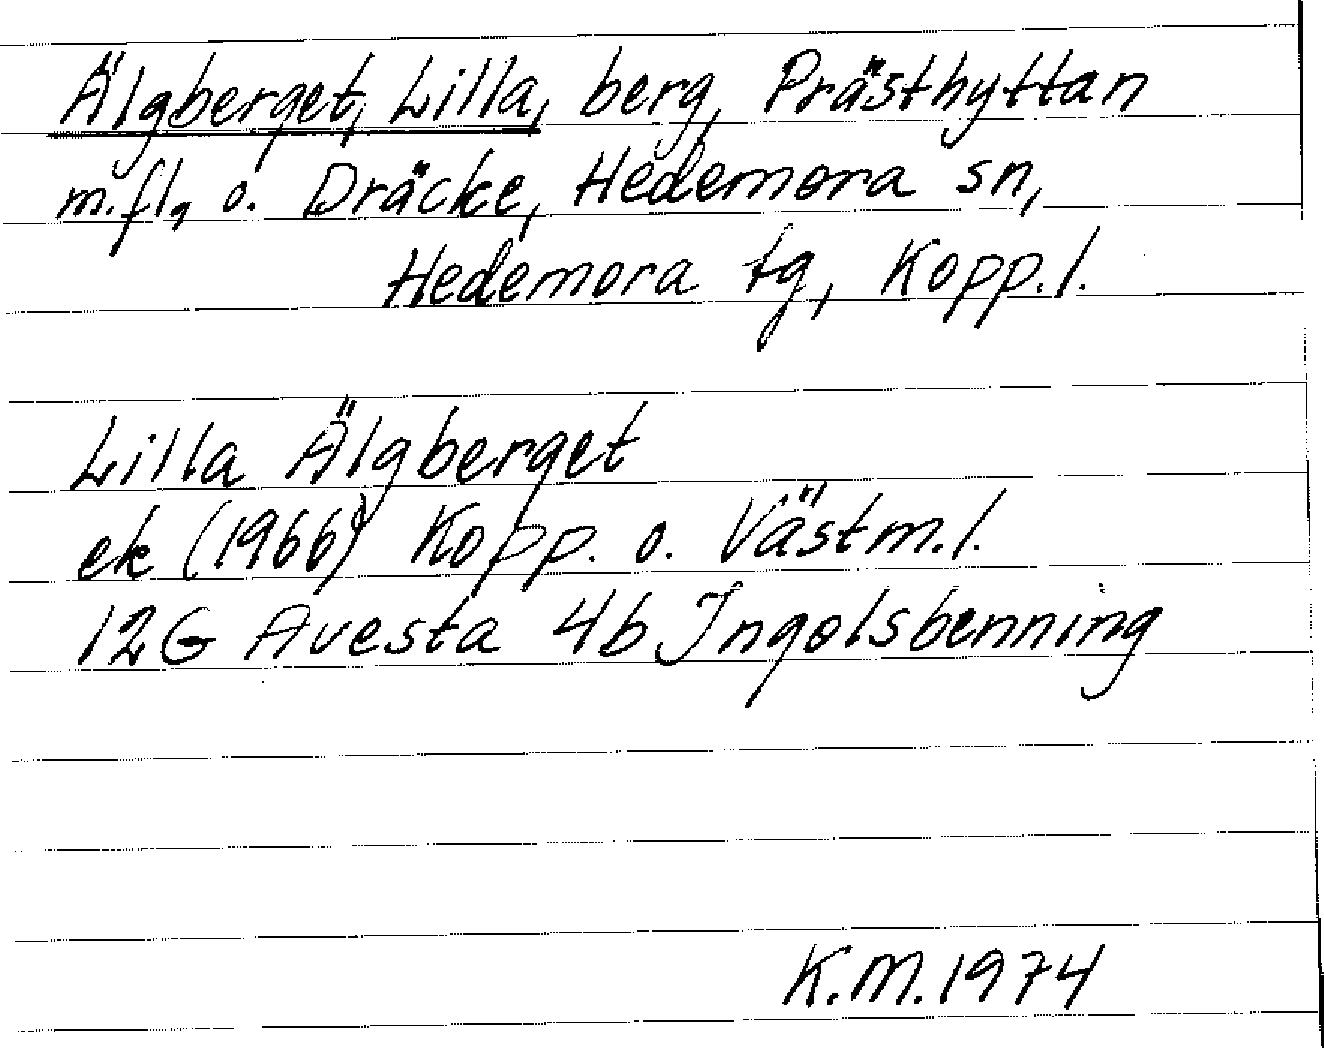 Älgberget, Lilla, berg, Prästhyttan
m.fl, o. Dräcke, Hedemora sn,
Hedemora tg, Kopp.l.
Lilla Älgberget
ek (1966) Kopp. o. Västm.l.
12G Avesta 4b Ingolsbenning
K.M. 1974